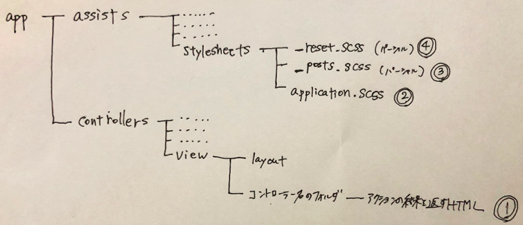 app
assists
stylesheets
_reset.scss (パーシャル) ④
_posts.scss (パーシャル) ③
application.scss ②
controllers
view
layout
コントローラー名のフォルダ ― アクションの結果を返すHTML ①